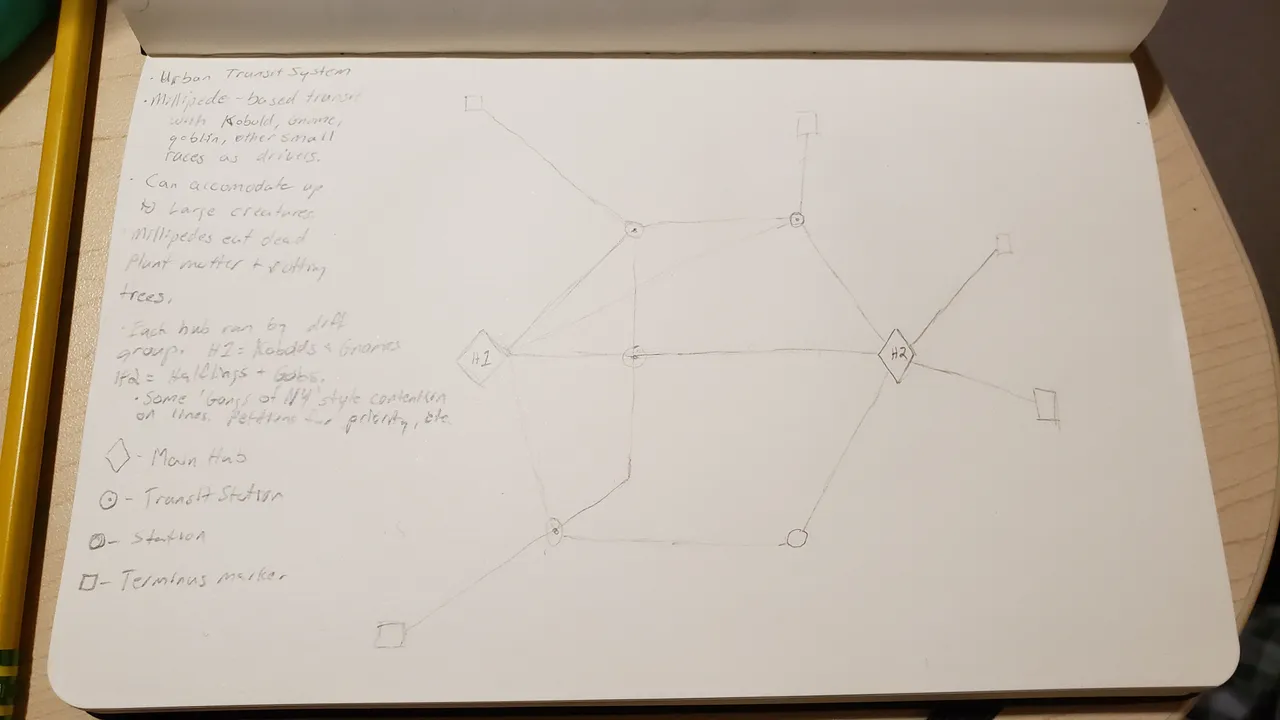 · Urban Transit System
· Millipede-based transit
with Kobold, Gnome,
goblin, other small
races as drivers.
· Can accomodate up
to Large creatures
· Millipedes eat dead
Plant matter + rotting
trees.
· Each hub run by diff
group. H1 = Kobolds + Gnomes
H2 = Halflings + Gobs.
· Some 'Gangs of NY' style contention
on lines. Petitions for priority, etc.
◇ - Main Hub
⊙ - Transit Station
○ - Station
□ - Terminus marker
H1
H2